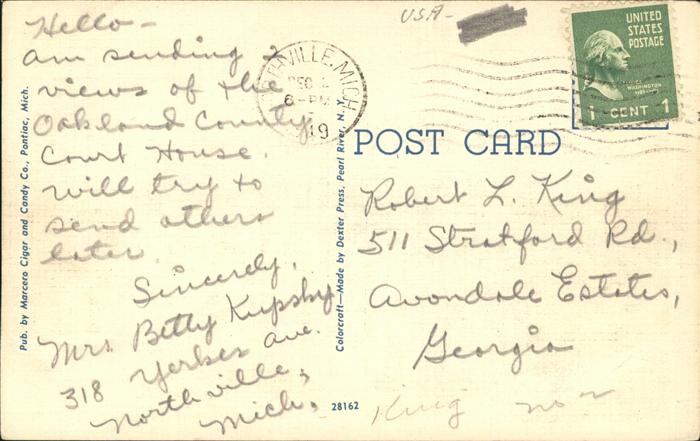 Hello-
am sending 2
views of the
Oakland County
Court House.
will try to
send others
later.
Sincerely,
Mrs Betty Kupsky
318 Yerkes Ave.
Northville,
Mich.
Pub. by Marcero Cigar and Candy Co., Pontiac, Mich.
Colorcraft—Made by Dexter Press, Pearl River, N. Y.
28162
USA-
VILLE, MICH
DEC
6-PM
19
UNITED
STATES
POSTAGE
WASHINGTON
1 CENT 1
POST CARD
Robert L. King
511 Stratford Rd.,
Avondale Estates,
Georgia
King